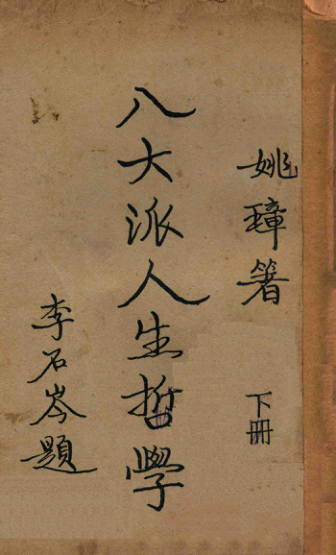 姚璋箸
下冊
八大派人生哲學
李石岑題